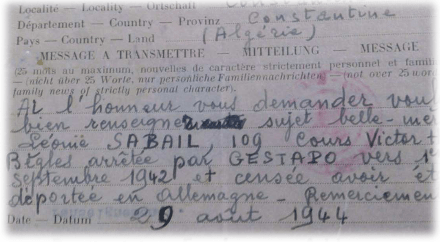 Localité — Locality — Ortschaft
Département — Country — Provinz Constantine
Pays — Country — Land (Algérie)
MESSAGE A TRANSMETTRE — MITTEILUNG — MESSAGE
(25 mots au maximum, nouvelles de caractère strictement personnel et famil
— (nicht über 25 Worte, nur persönliche Familiennachrichten) — (not over 25 wor
family news of strictly personal character).
Ai l'honneur vous demander vou
bien renseigner sujet belle-mè
Léonie SABAIL, 109 Cours Victor
Bègles arrêtée par GESTAPO vers 1e
Septembre 1942 et censée avoir ét
déportée en Allemagne. Remerciemen
Date — Datum 29 août 1944